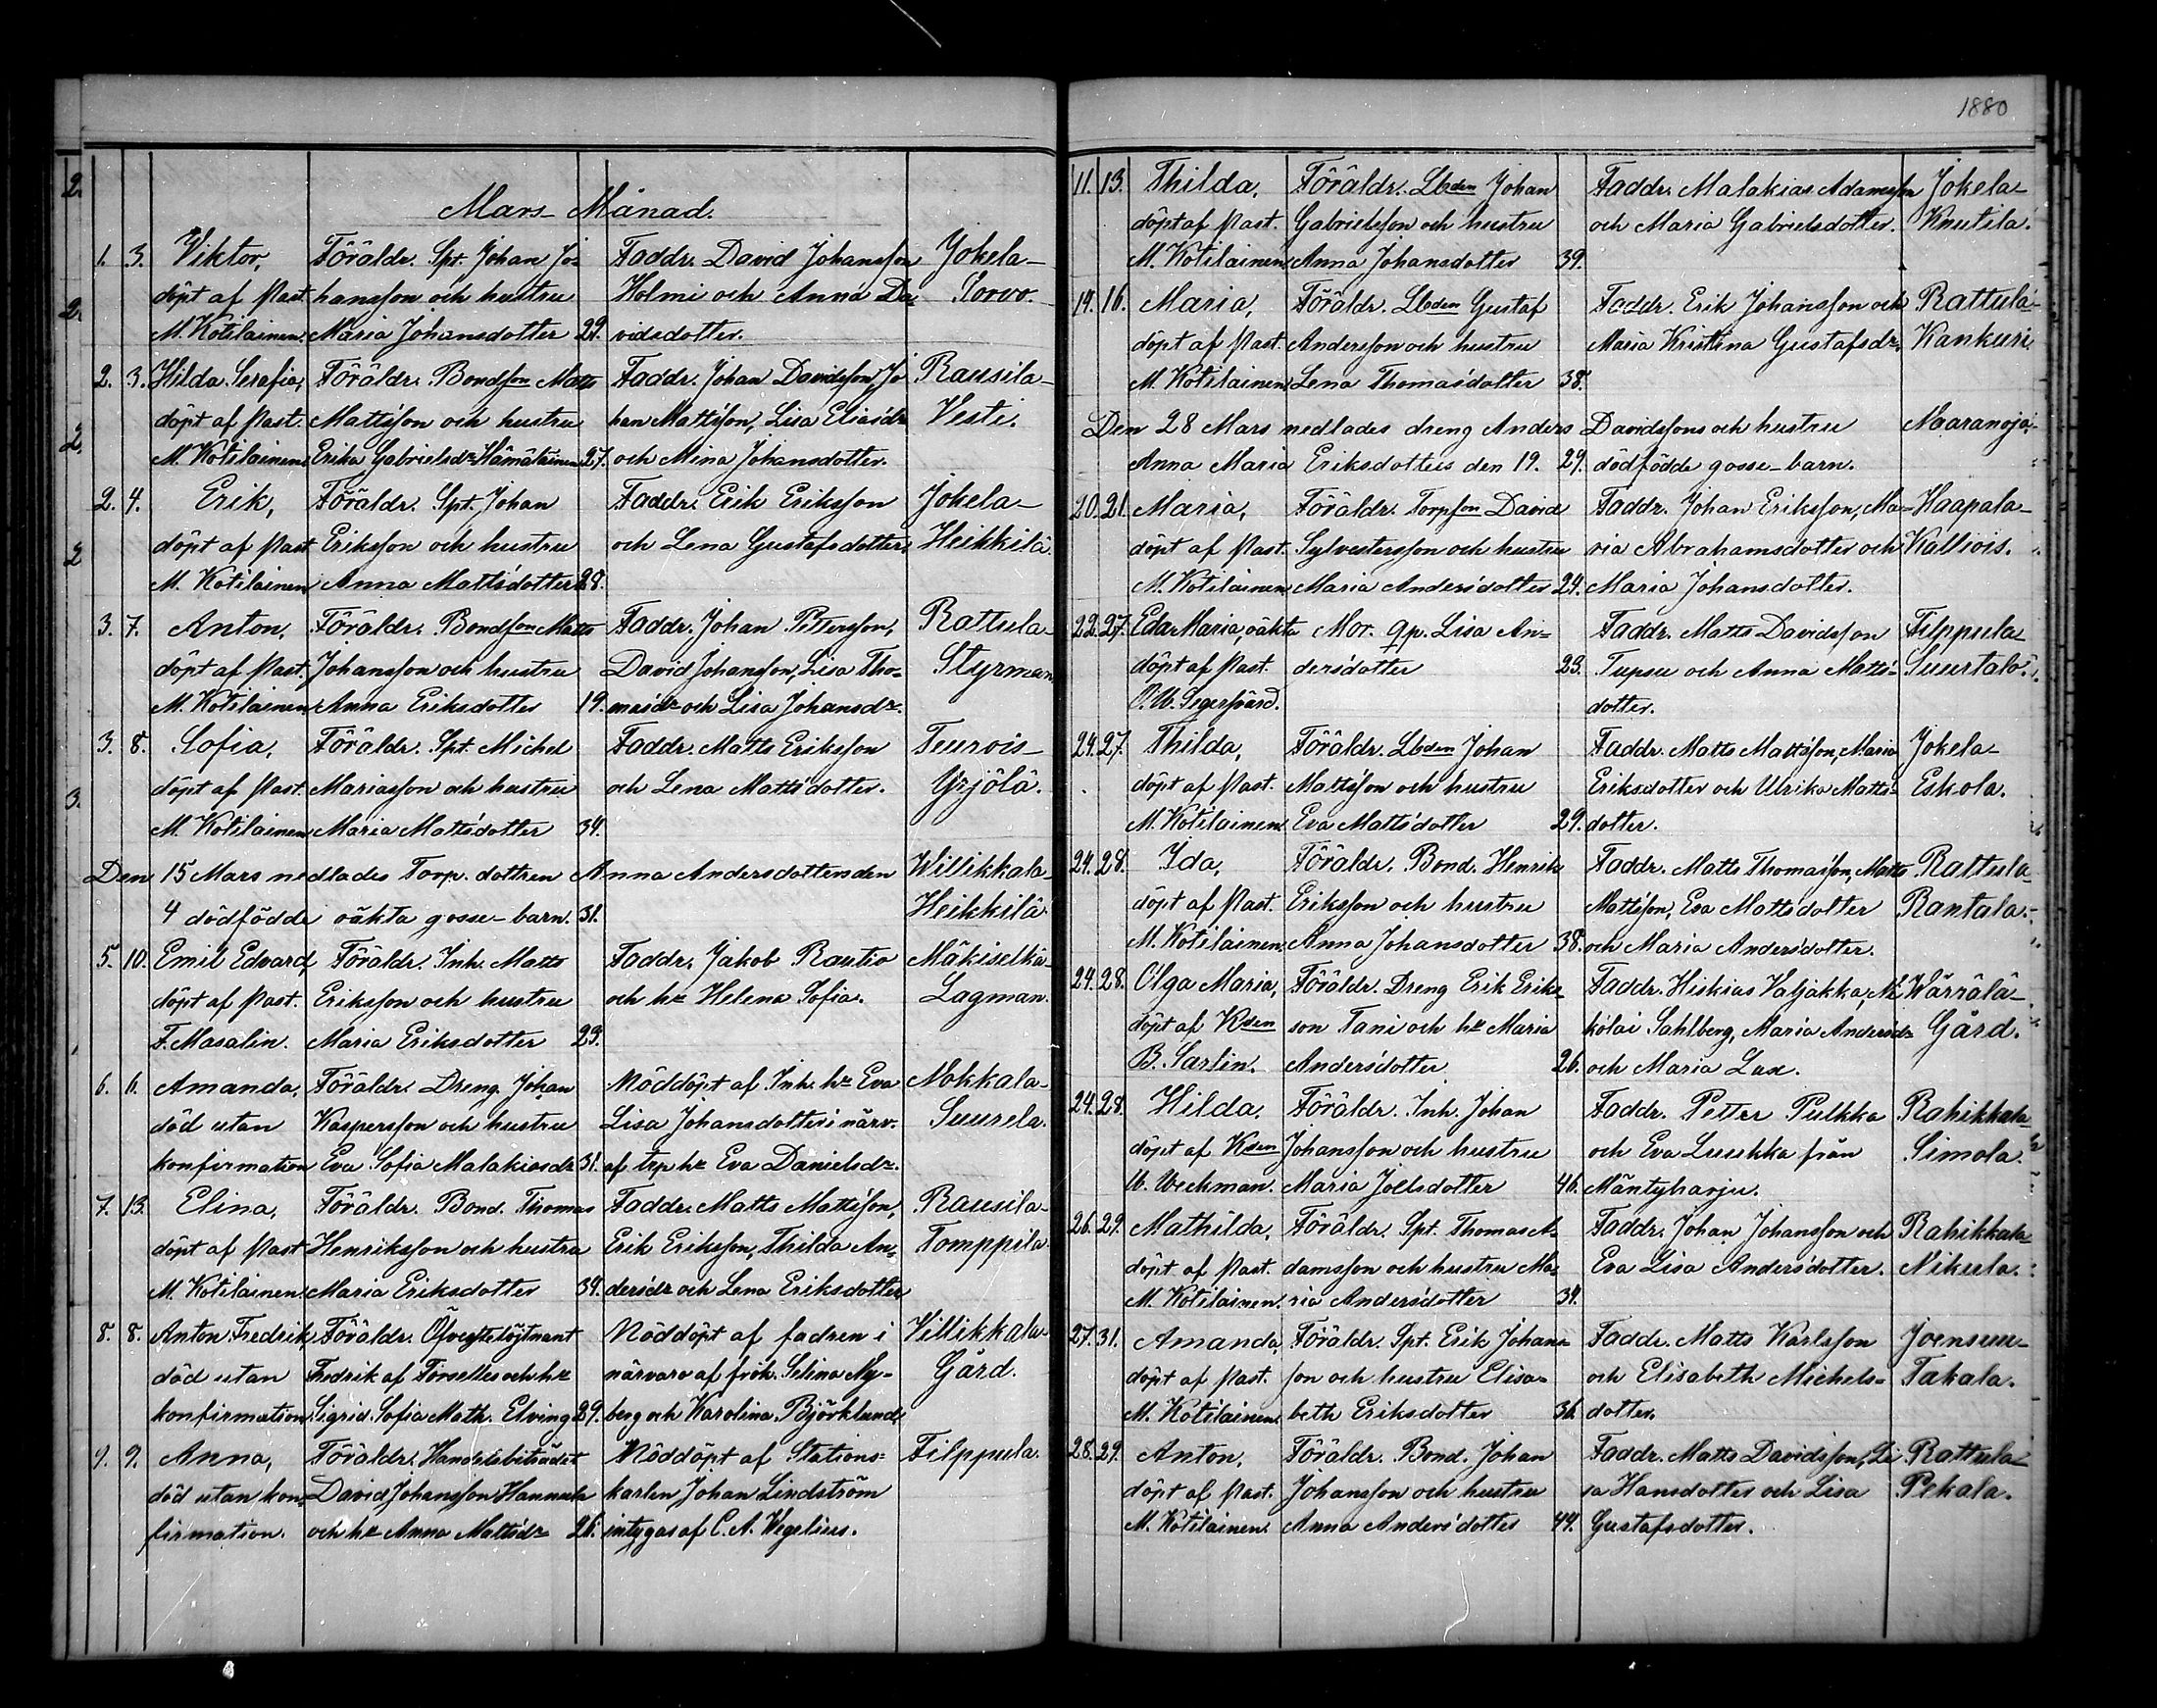 1880
Mars Månad.
1. 3. Viktor, Föräldr. Spt. Johan Jo- Faddr. David Johansson Jokela-
döpt af Past. hansson och hustru Holmi och Anna Da- Torvo.
M. Kotilainen. Maria Johansdotter 29. vidsdotter.
2. 3. Hilda Serafia, Föräldr. Bondson Matts Faddr. Johan Davidsson, Jo Rausila-
döpt af Past. Mattsson och hustru han Mattsson, Lisa Eliasdr Vesti.
M. Kotilainen. Erika Gabrielsdr Hämäläinen 27. och Mina Johansdotter.
2. 4. Erik, Föräldr. Spt. Johan Faddr. Erik Eriksson Jokela-
döpt af Past Eriksson och hustru och Lena Gustafsdotter. Heikkilä
M. Kotilainen Anna Mattsdotter 28.
3. 7. Anton, Föräldr. Bondson Matts Faddr. Johan Pettersson, Rattula-
döpt af Past. Johansson och hustru David Johansson, Lisa Tho- Styrman
M. Kotilainen. Anna Eriksdotter 19. masdr och Lisa Johansdr.
3. 8. Sofia, Föräldr. Spt. Michel Faddr. Matts Eriksson Teurois-
döpt af Past. Mariasson och hustru och Lena Mattsdotter. Yrjölä.
M. Kotilainen Maria Mattsdotter 34.
Den 15 Mars nedlades Torp. dottren Anna Andersdottens den Willikkala-
4 dödfödde oäkta gosse-barn. 31. Heikkilä
5. 10. Emil Edvard, Föräldr. Inh. Matts Faddr. Jakob Rautio Mäkiselkä-
döpt af Past. Eriksson och hustru och hr Helena Sofia. Lagman.
F. Masalin. Maria Eriksdotter 23.
6. 6. Amanda, Föräldr. Dreng. Johan Nöddöpt af Inh. hr Eva Nokkala-
död utan Kaspersson och hustru Lisa Johansdotter i närv. Suurela.
konfirmation Eva Sofia Malakiasdr 31. af trp hr Eva Danielsdr.
7. 13. Elina, Föräldr. Bond. Thomas Faddr. Matts Mattsson, Rausila-
döpt af Past Henriksson och hustru Erik Eriksson, Thilda An- Tomppila
M. Kotilainen Maria Eriksdotter 34. dersdr och Lena Eriksdotter
8. 8. Anton Fredrik, Föräldr. Öfverstelöjtnant Nöddöpt af fadren i Villikkala-
död utan Fredrik af Forselles och hr närvaro af frök. Selina Ny- Gård.
konfirmation. Sigrid Sofia Math. Elving 29. berg och Karolina Björklund
9. 9. Anna, Föräldr. Handelsbiträdet Nöddöpt af Stations- Filppula.
död utan kon- David Johansson Hannula karlen Johan Lindström
firmation. och hr Anna Mattsdr 26. intygas af C. A. Wegelius.
11. 13. Thilda, Föräldr. Lbden Johan Faddr. Malakias Adamsson Jokela-
döpt af Past. Gabrielsson och hustru och Maria Gabrielsdotter. Knutila.
M. Kotilainen Anna Johansdotter 39.
14. 16. Maria, Föräldr. Lbden Gustaf Faddr. Erik Johansson och Rattula-
döpt af Past. Andersson och hustru Maria Kristina Gustafsdr. Kankuri
M. Kotilainen Lena Thomasdotter 38.
Den 28 Mars nedlades dreng Anders Davidssons och hustru Naaranoja,
Anna Maria Eriksdotters den 19. 29. dödfödda gosse-barn.
20. 21. Maria, Föräldr. Torpson David Faddr. Johan Eriksson, Ma- Haapala-
döpt af Past. Sylvestersson och hustru ria Abrahamsdotter och Kalliois.
M. Kotilainen Maria Andersdotter 24. Maria Johansdotter.
22. 27. Eda Maria, oäkta Mor. qp. Lisa An- Faddr. Matts Davidsson Filppula-
döpt af Past. dersdotter 23. Tupsu och Anna Matts- Suurtalo.
O. W. Segersvärd. dotter.
24. 27. Thilda, Föräldr. Lbden Johan Faddr. Matts Mattsson, Maria Jokela-
döpt af Past. Mattsson och hustru Eriksdotter och Ulrika Matts- Eskola.
M. Kotilainen Eva Mattsdotter 29. dotter.
24. 28. Ida, Föräldr. Bond. Henrik Faddr. Matts Thomasson, Matts Rattula-
döpt af Past. Eriksson och hustru Mattsson, Eva Mattsdotter Rantala.
M. Kotilainen Anna Johansdotter 38. och Maria Andersdotter.
24. 28. Olga Maria, Föräldr. Dreng Erik Eriks- Faddr. Hiskias Valjakka, Ni Wärrälä-
döpt af Kden son Tani och hr Maria kolai Sahlberg, Maria Andersdr Gård.
B. Sarlin. Andersdotter 26. och Maria Lax.
24. 28. Hilda, Föräldr. Inh. Johan Faddr. Petter Pulkka Rahikkala
döpt af Kden Johansson och hustru och Eva Luukka från Simola.
W. Weckman. Maria Joelsdotter 46. Mäntyharju.
26. 29. Mathilda, Föräldr. Spt. Thomas A- Faddr. Johan Johansson och Rahikkala-
döpt af Past. damsson och hustru Ma- Eva Lisa Andersdotter. Nikula.
M. Kotilainen. ria Andersdotter 34.
27. 31. Amanda, Föräldr. Spt. Erik Johans- Faddr. Matts Karlsson Joensuu-
döpt af Past. son och hustru Elisa- och Elisabeth Michels- Takala.
M. Kotilainen. beth Eriksdotter 36. dotter.
28. 29. Anton, Föräldr. Bond. Johan Faddr. Matts Davidsson, Li Rattula-
döpt af Past. Johansson och hustru sa Hansdotter och Lisa Pekala.
M. Kotilainen. Anna Andersdotter 44. Gustafsdotter.